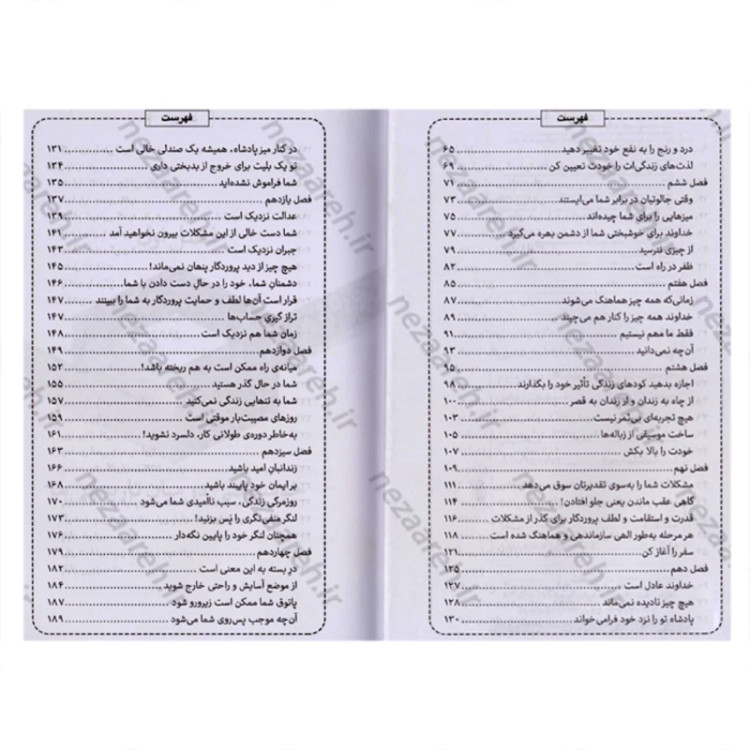 فهرست
درد و رنج را به نفع خود تغییر دهید ۶۵
لذت‌های زندگی‌ات را خودت تعیین کن ۶۹
فصل ششم ۷۱
وقتی جالوتیان در برابر شما می‌ایستند ۷۳
میزهایی را برای شما چیده‌اند ۷۵
خداوند برای خوشبختی شما از دشمن بهره می‌گیرد ۷۷
از چیزی نترسید ۷۹
ظفر در راه است ۸۲
فصل هفتم ۸۵
زمانی‌که همه چیز هماهنگ می‌شوند ۸۷
خداوند همه چیز را کنار هم می‌چیند ۸۹
فقط ما مهم نیستیم ۹۱
آن‌چه نمی‌دانید ۹۳
فصل هشتم ۹۵
اجازه بدهید کودهای زندگی تأثیر خود را بگذارند ۹۸
از چاه به زندان و از زندان به قصر ۱۰۰
هیچ تجربه‌ای بی‌ثمر نیست ۱۰۳
ساخت موسیقی از زباله‌ها ۱۰۵
خودت را بالا بکش ۱۰۷
فصل نهم ۱۰۹
مشکلات شما را به‌سوی تقدیرتان سوق می‌دهد ۱۱۱
گاهی عقب ماندن یعنی جلو افتادن! ۱۱۴
قدرت و استقامت و لطف پروردگار برای گذر از مشکلات ۱۱۶
هر مرحله به‌طور الهی سازماندهی و هماهنگ شده است ۱۱۸
سفر را آغاز کن ۱۲۱
فصل دهم ۱۲۵
خداوند عادل است ۱۲۷
هیچ چیز نادیده نمی‌ماند ۱۲۸
پادشاه تو را نزد خود فرامی‌خواند ۱۳۰
فهرست
در کنار میز پادشاه، همیشه یک صندلی خالی است ۱۳۱
تو یک بلیت برای خروج از بدبختی داری ۱۳۴
شما فراموش نشده‌اید ۱۳۵
فصل یازدهم ۱۳۷
عدالت نزدیک است ۱۳۹
شما دست خالی از این مشکلات بیرون نخواهید آمد ۱۴۱
جبران نزدیک است ۱۴۳
هیچ چیز از دید پروردگار پنهان نمی‌ماند! ۱۴۵
دشمنان شما، خود را در حال دست دادن با شما ۱۴۶
قرار است آن‌ها لطف و حمایت پروردگار به شما را ببینند ۱۴۷
تراز گیری حساب‌ها ۱۴۷
زمان شما هم نزدیک است ۱۴۸
فصل دوازدهم ۱۴۹
میانه‌ی راه ممکن است به هم ریخته باشد! ۱۵۲
شما در حال گذر هستید ۱۵۵
شما به تنهایی زندگی نمی‌کنید ۱۵۷
روزهای مصیبت‌بار موقتی است ۱۵۹
به‌خاطر دوره‌ی طولانی کار، دلسرد نشوید! ۱۶۱
فصل سیزدهم ۱۶۳
زندانبانِ امید باشید ۱۶۶
بر ایمان خود پایبند باشید ۱۶۸
روزمرگی زندگی، سبب ناامیدی شما می‌شود ۱۷۰
لنگر منفی‌نگری را پس بزنید! ۱۷۳
همچنان لنگر خود را پایین نگه‌دار ۱۷۶
فصل چهاردهم ۱۷۹
در بسته به این معنی است ۱۸۲
از موضع آسایش و راحتی خارج شوید ۱۸۴
پاتوق شما ممکن است زیرورو شود ۱۸۷
آن‌چه موجب پس‌روی شما می‌شود ۱۸۹
nezaareh.ir